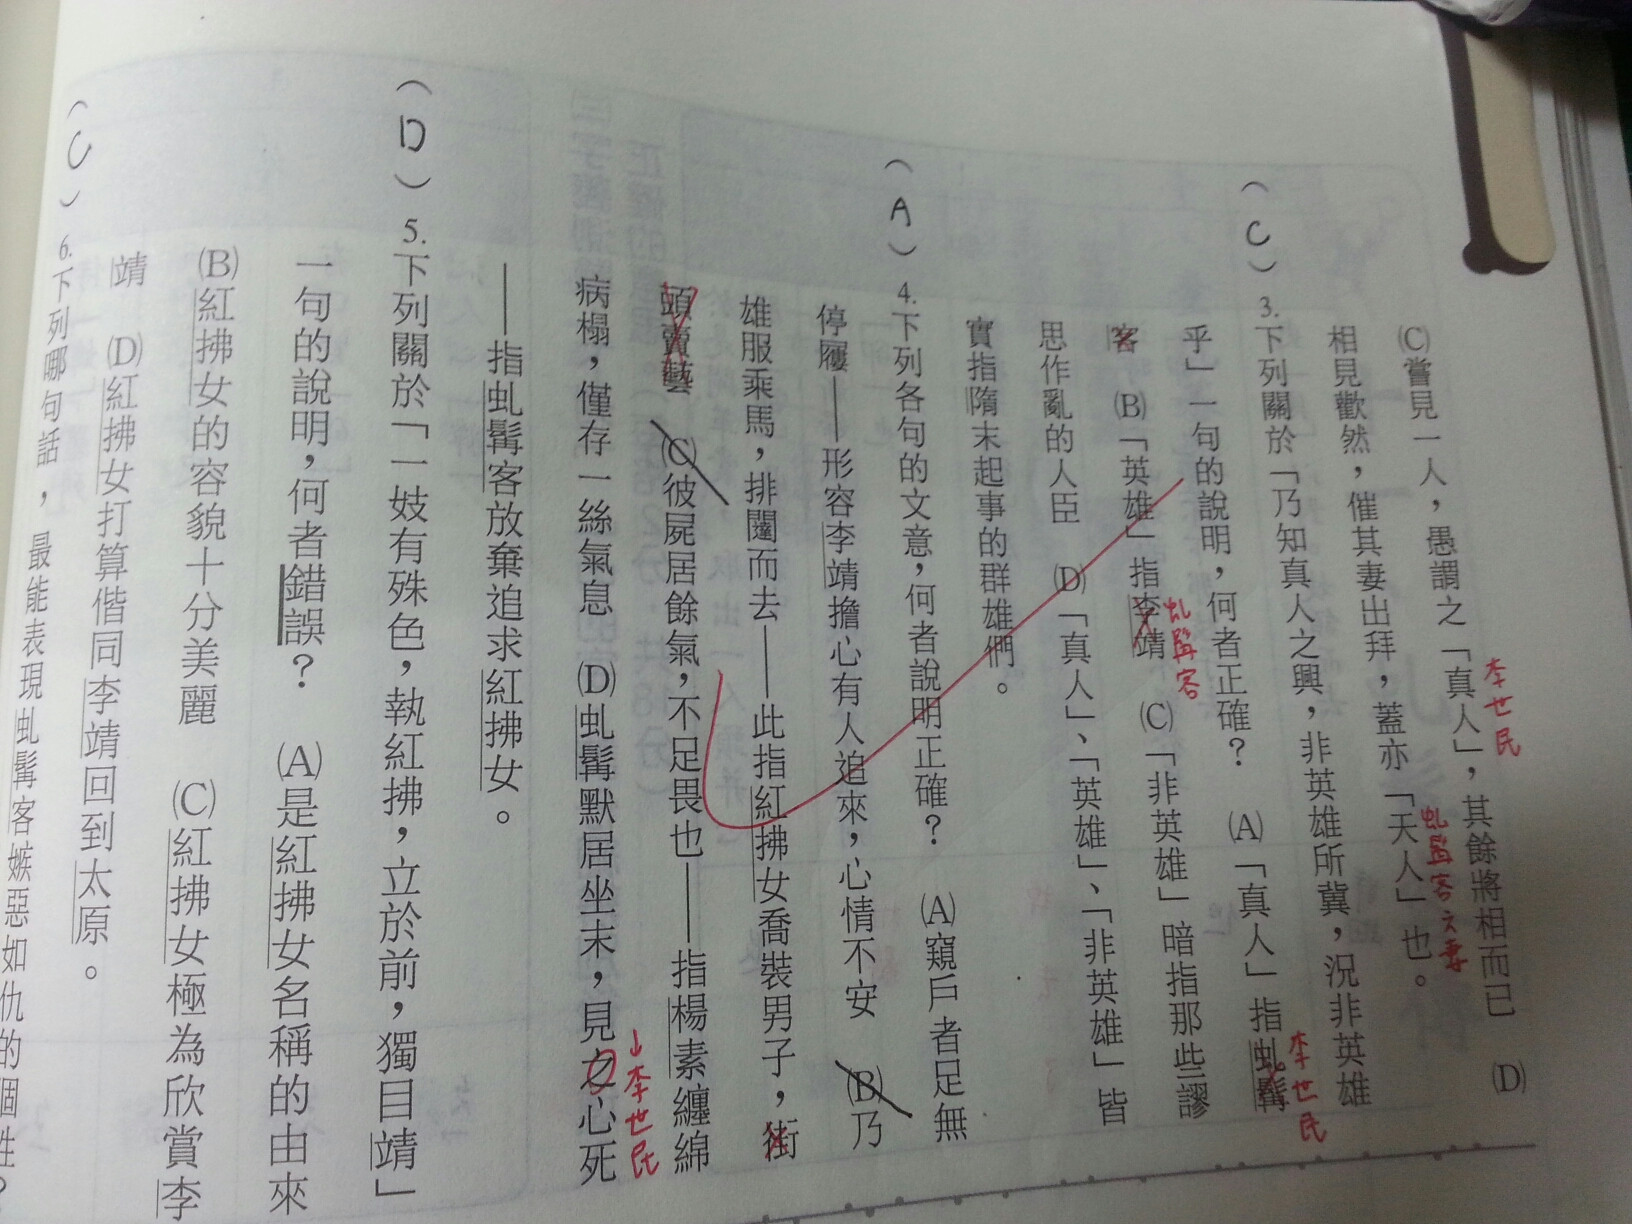 (C)嘗見一人，愚謂之「真人」，其餘將相而已　(D)
李世民
相見歡然，催其妻出拜，蓋亦「天人」也。
虬髯客夫妻
(C) 3.下列關於「乃知真人之興，非英雄所冀，況非英雄
乎」一句的說明，何者正確？　(A)「真人」指虬髯
李世民
客　(B)「英雄」指李靖　(C)「非英雄」暗指那些謬
虬髯客
思作亂的人臣　(D)「真人」、「英雄」、「非英雄」皆
實指隋末起事的群雄們。
(A) 4.下列各句的文意，何者說明正確？　(A)窺戶者足無
停屨——形容李靖擔心有人追來，心情不安　(B)乃
雄服乘馬，排闥而去——此指紅拂女喬裝男子，街
頭賣藝　(C)彼屍居餘氣，不足畏也——指楊素纏綿
病榻，僅存一絲氣息　(D)虬髯默居坐末，見之心死
↓李世民
——指虬髯客放棄追求紅拂女。
(D) 5.下列關於「一妓有殊色，執紅拂，立於前，獨目靖」
一句的說明，何者錯誤？　(A)是紅拂女名稱的由來
(B)紅拂女的容貌十分美麗　(C)紅拂女極為欣賞李
靖　(D)紅拂女打算偕同李靖回到太原。
(C) 6.下列哪句話，最能表現虬髯客嫉惡如仇的個性？